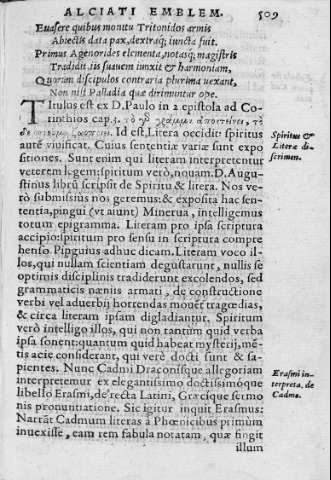 ALCIATI EMBLEM. 509
Euasere quibus monitu Tritonidos armis
Abiectis data pax, dextraq́; iuncta fuit.
Primus Agenorides elementa, notasq́; magistris
Tradidit, iis suauem iunxit & harmoniam,
Quorum discipulos contraria plurima vexant,
Non nisi Palladia quæ dirimuntur ope.
Titulus est ex D. Paulo in 2 epistola ad Co-
rinthios cap. 3. τὸ γὸ γράμμα ἀποκτείνει, τὸ
δὲ πνεῦμα ζωοποιεῖ. Id est, Litera occidit: spiritus
autē viuificat. Cuius sententiæ variæ sunt expo
sitiones. Sunt enim qui literam interpretentur
veterem legem; spiritum verò, nouam. D. Augu-
stinus librū scripsit de Spiritu & litera. Nos ve-
rò submissius nos geremus: & exposita hac sen-
tentia, pingui (vt aiunt) Minerua, intelligemus
totum epigramma. Literam pro ipsa scriptura
accipio: spiritum pro sensu in scriptura compre
henso. Pinguius adhuc dicam. Literam voco il-
los, qui nullam scientiam degustarunt, nullis se
optimis disciplinis tradiderunt excolendos, sed
grammaticis næniis armati, de constructione
verbi vel aduerbij horrendas mouēt tragœdias,
& circa literam ipsam digladiantur. Spiritum
verò intelligo illos, qui non tantùm quid verba
ipsa sonent: quantum quid habeat mysterij, mē-
tis acie considerant, qui verè docti sunt & sa-
pientes. Nunc Cadmi Draconisque allegoriam
interpretemur ex elegantissimo doctissimóque
libello Erasmi, de recta Latini, Græcique sermo
nis pronuntiatione. Sic igitur inquit Erasmus:
Narrāt Cadmum literas à Phœnicibus primùm
inuexisse, eam rem fabula notatam, quæ fingit
illum
Spiritus &
Literæ di-
scrimen.
Erasmi in-
terpreta. de
Cadmo.